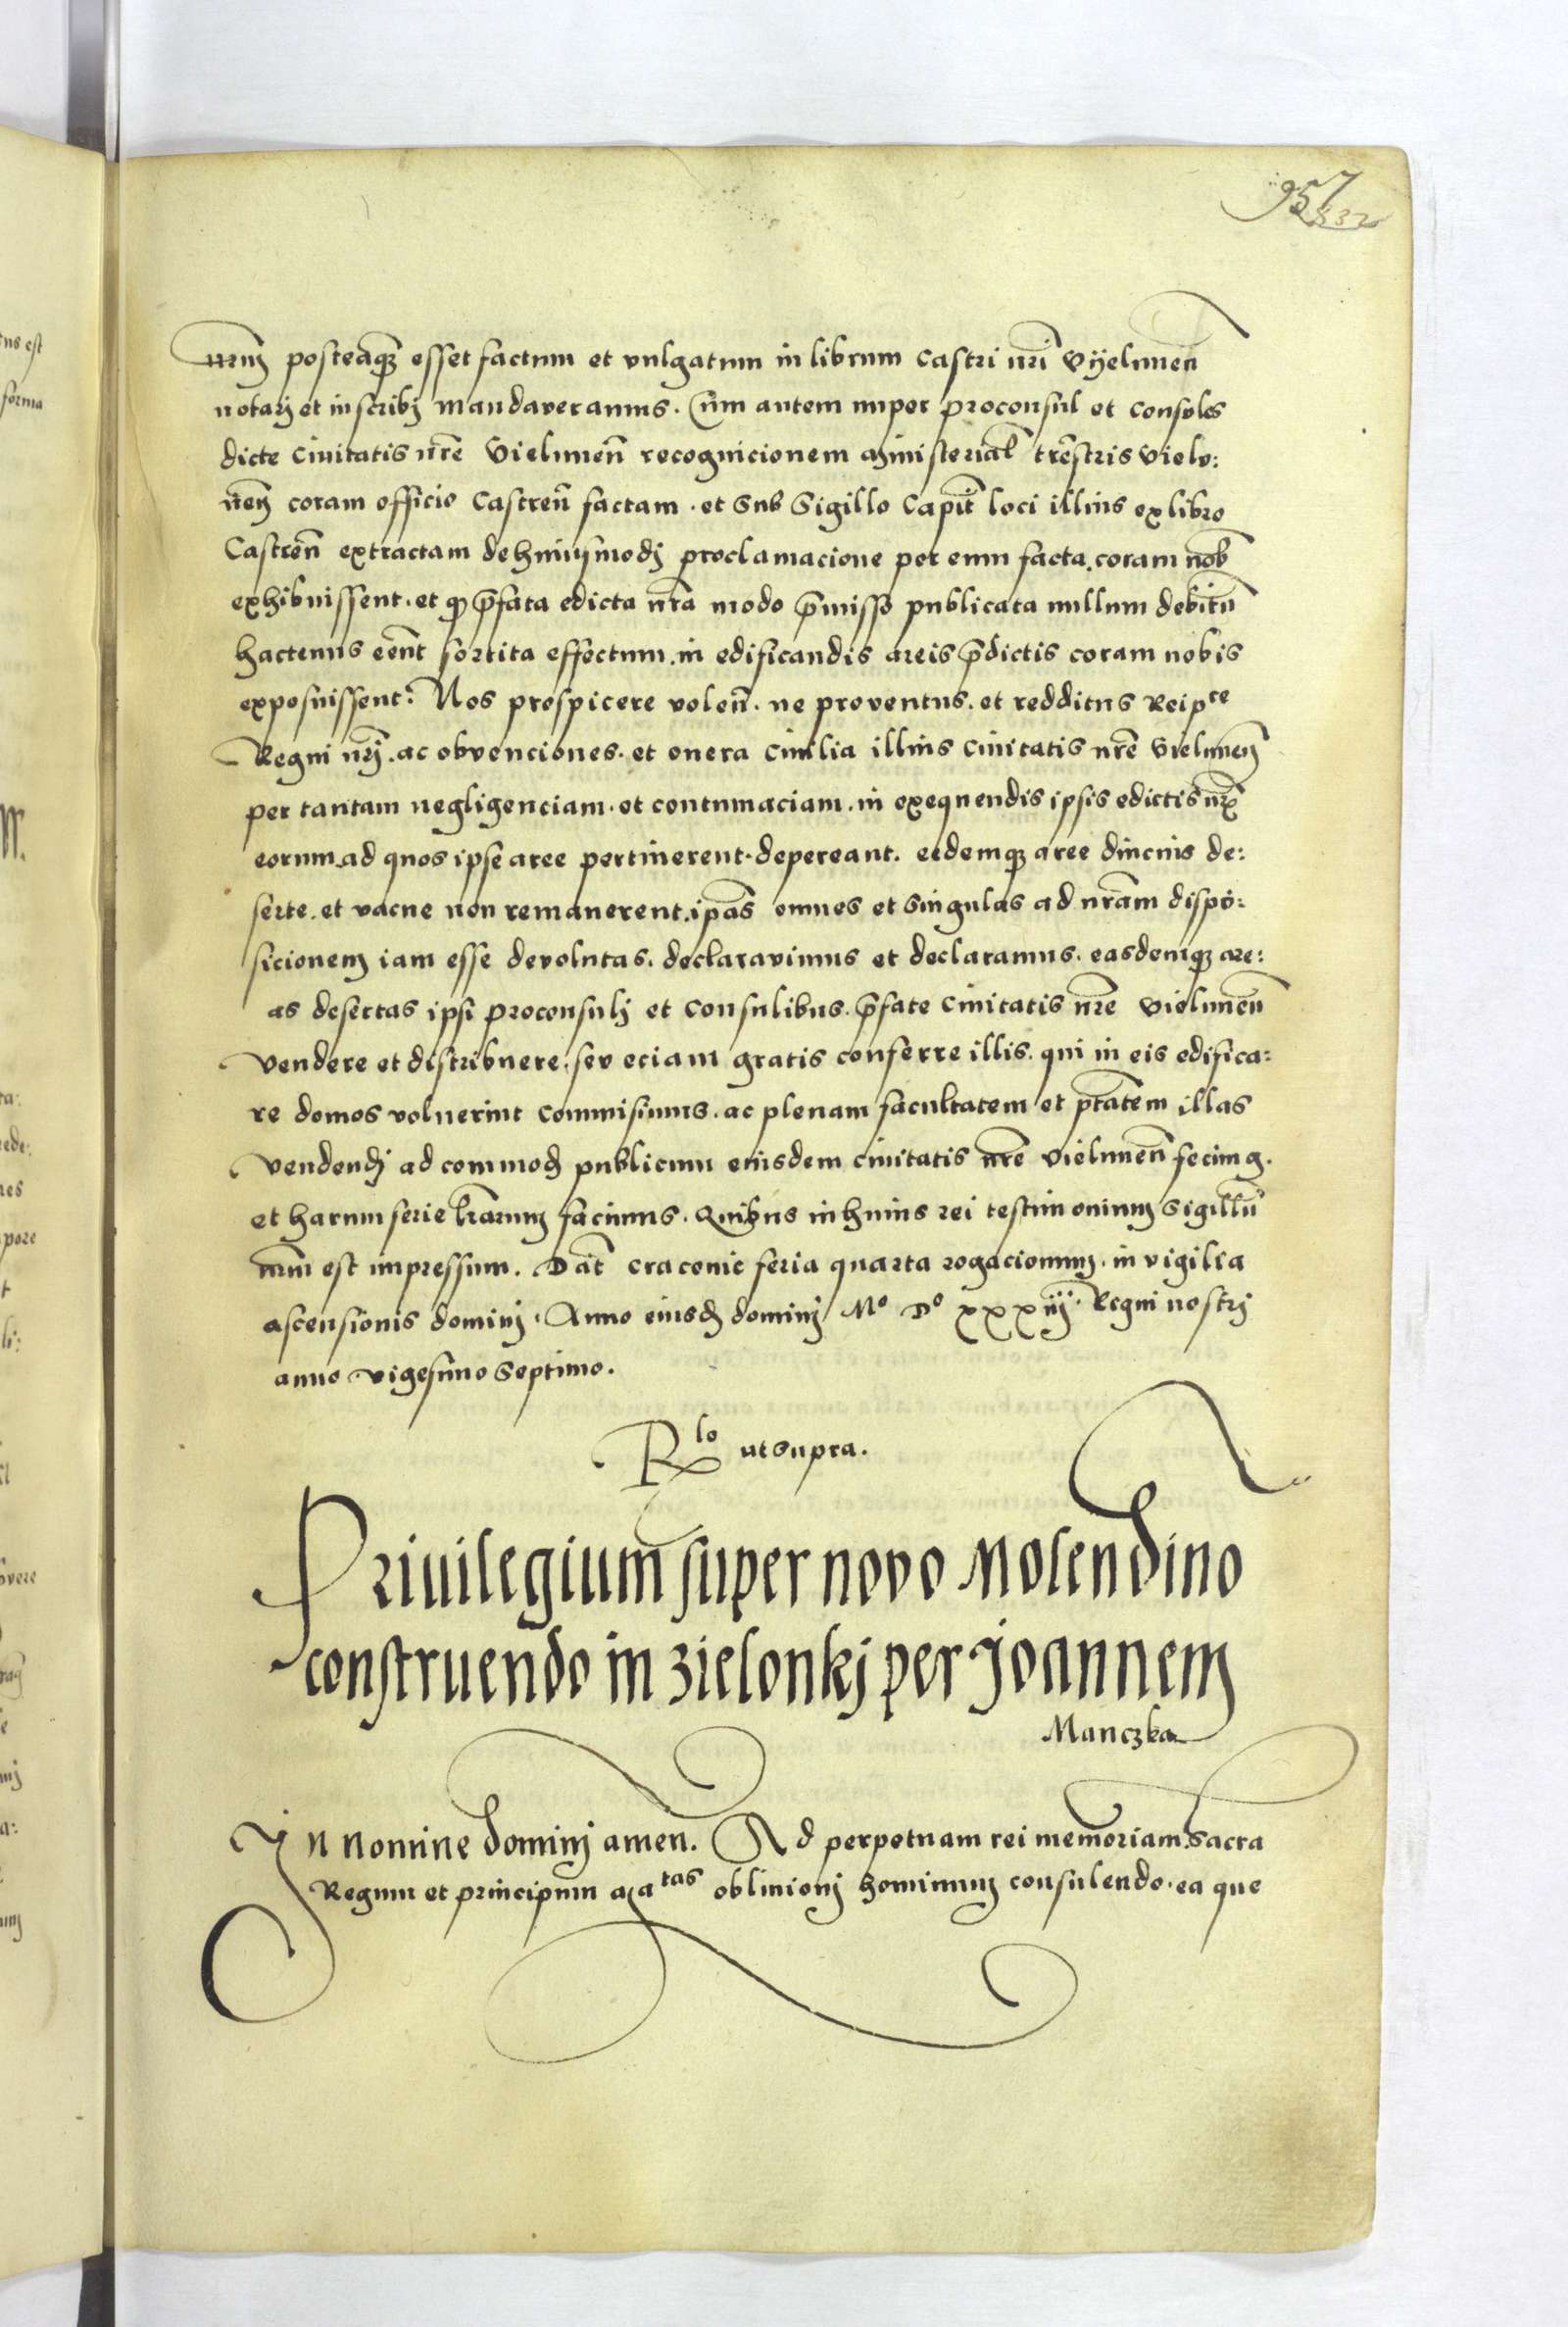 957
332
nr̄m posteaq̨ esset factum et vulgatum in librum castri nr̄i Vyelunen̄
notarj et inscribj mandaveramus. Cum autem nuper proconsul et consules
dicte civitatis nr̄e Vielunen̄ recognicionem ministerial̄ tr̄estris vielu:
nen̄ coram officio Castren̄ factam. et sub Sigillo Capit̄ loci illius ex libro
Castren̄ extractam de huiusmodj proclamacione per eum facta. coram nob̄
exhibuissent. et q p̄fata edicta nr̄a modo p̄misso publicata nullum debitū
hactenus eēnt sortita effectum. in edificandis areis p̄dictis coram nobis
exposuissent: Nos prospicere volen̄. ne proventus. et redditus Reipce
Regni nr̄j. ac obvenciones. et onera civilia illius civitatis nr̄e Vielunen̄
per tantam negligenciam. et contumaciam. in exequendis ipsis edictis nr̄is
eorum ad quos ipse aree pertinerent. depereant. eedemq̨ aree diucius de:
serte. et vacue non remanerent. ip̄as omnes et singulas ad nr̄am dispo:
sicionem iam esse devolutas. declaravimus et declaramus. easdemq̨ are:
as desertas ipsi proconsulj et consulibus. p̄fate civitatis nr̄e Vielunen̄
vendere et distribuere. seu eciam gratis conferre illis. qui in eis edifica:
re domos voluerint commisimus. ac plenam facultatem et ptātem illas
vendendj ad commod publicum eiusdem civitatis nr̄e Vielunen̄ fecimq.
et harum serie lr̄arum facimus. Quibus in huius rei testimonium Sigillū
nr̄m est impressum. Dat̄ cracovie feria quarta rogacionum. in vigilia
ascensionis dominj. Anno eiusd dominj Mo Do xxxiij. Regni nostrj
anno vigesimo septimo.
Rlo ut supra.
Privilegium super novo Molendino
construendo in Zielonkj per Joannem
Manczka
In nomine dominj amen. Ad perpetuam rei memoriam. Sacra
Regum et principum matas oblivionj hominum consulendo. ea que